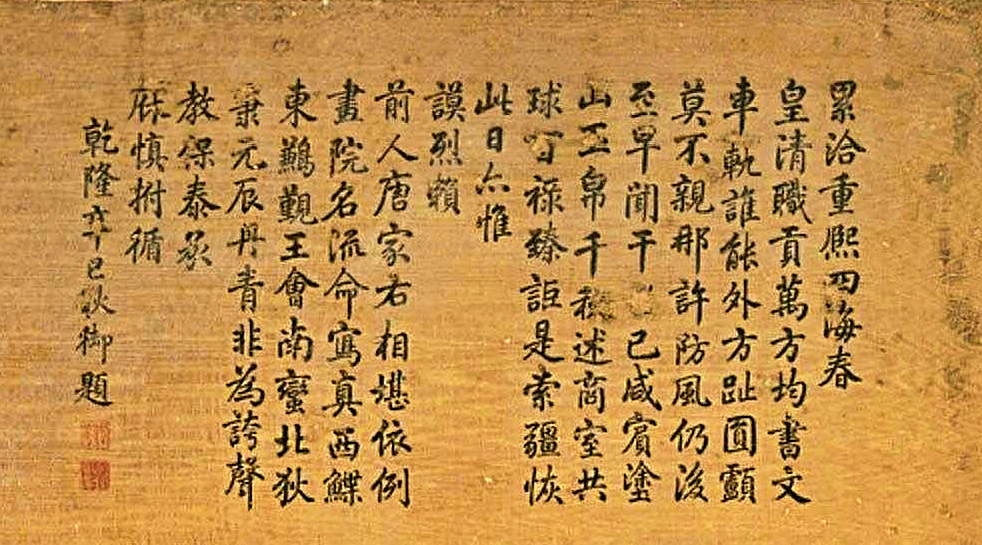 累洽重熙四海春
皇清職貢萬方均書文
車軌誰能外方趾圎顱
莫不親那許防風仍後
至早聞干 已咸賓塗
山玉帛千 述商室共
球百祿臻詎是索疆恢
此日亦惟
謨烈賴
前人唐家右相堪依例
畫院名流命寫真西鰈
東鶼覲王會南蠻北狄
秉元辰丹青非為誇聲
教保泰承
庥慎拊循
乾隆 巳秋御題